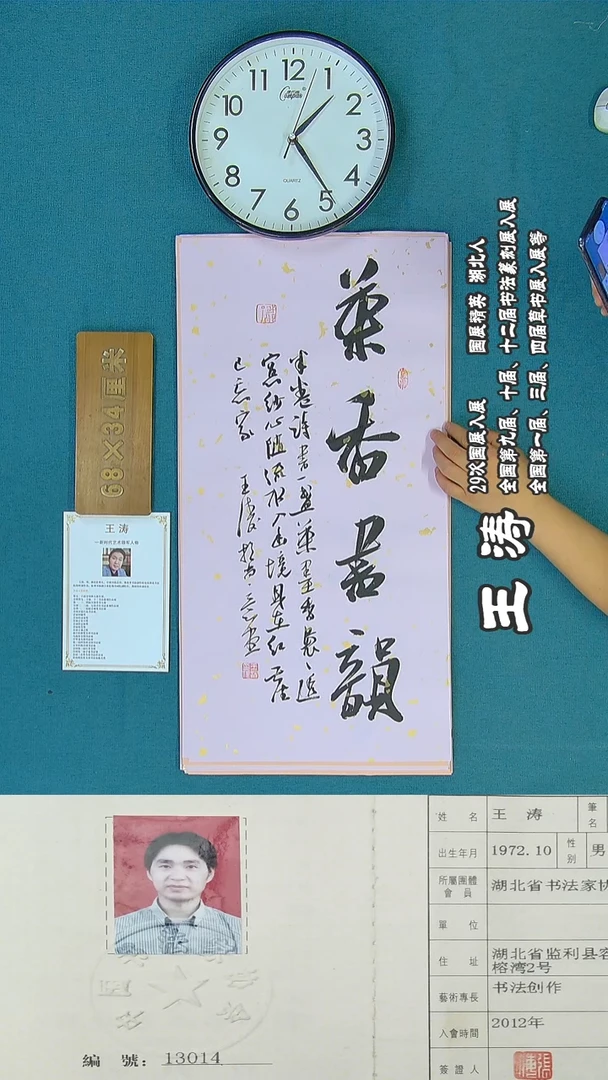 12
1
2
3
4
5
6
7
8
9
10
11
Compas
QUARTZ
茶香書韻
半卷詩書一盏茶墨香裊裊透
窓纱心随流水入幽境身在红塵
已忘家 王涛
68×34厘米
王涛
王涛
29次国展入展 国展精英 湖北人
全国第九届、十届、十二届书法篆刻展入展
全国第一届、三届、四届草书展入展等
編 號：13014
姓 名 王 涛 筆名
出生年月 1972.10 性别 男
所屬團體會員 湖北省书法家协
單 位
住 址 湖北省监利县容
榕湾2号
藝術專長 书法创作
入會時間 2012年
簽證人